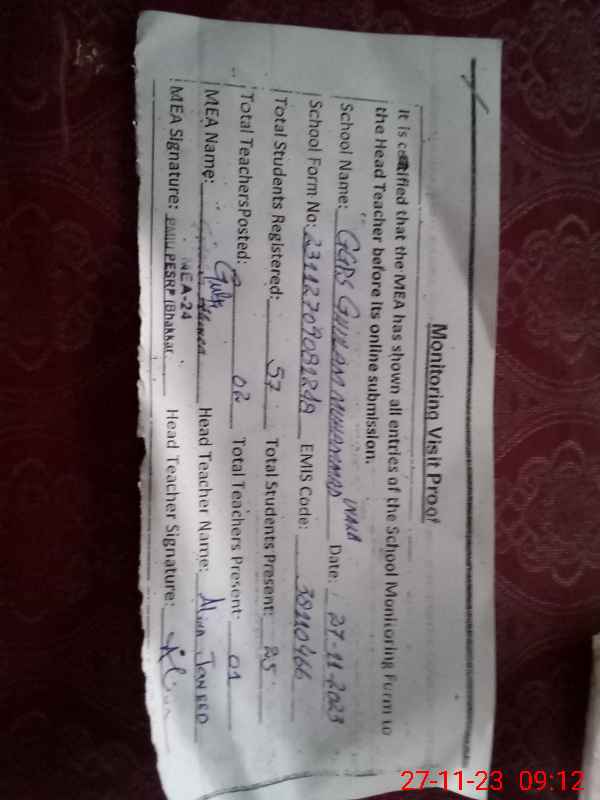 Monitoring Visit Proof
It is certified that the MEA has shown all entries of the School Monitoring Form to
the Head Teacher before its online submission.
School Name: GGPS GHULAM MUHAMMAD WALA Date: 27-11-2023
School Form No: 231127090812 EMIS Code: 38110466
Total Students Registered: 57 Total Students Present: 25
Total TeachersPosted: 02 Total Teachers Present: 01
MEA Name: Head Teacher Name: Alina JAVEED
MEA Signature: MEA-24 Head Teacher Signature: Alina
PMIU PESRP (Bhakkar
27-11-23 09:12